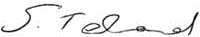 S. Toland